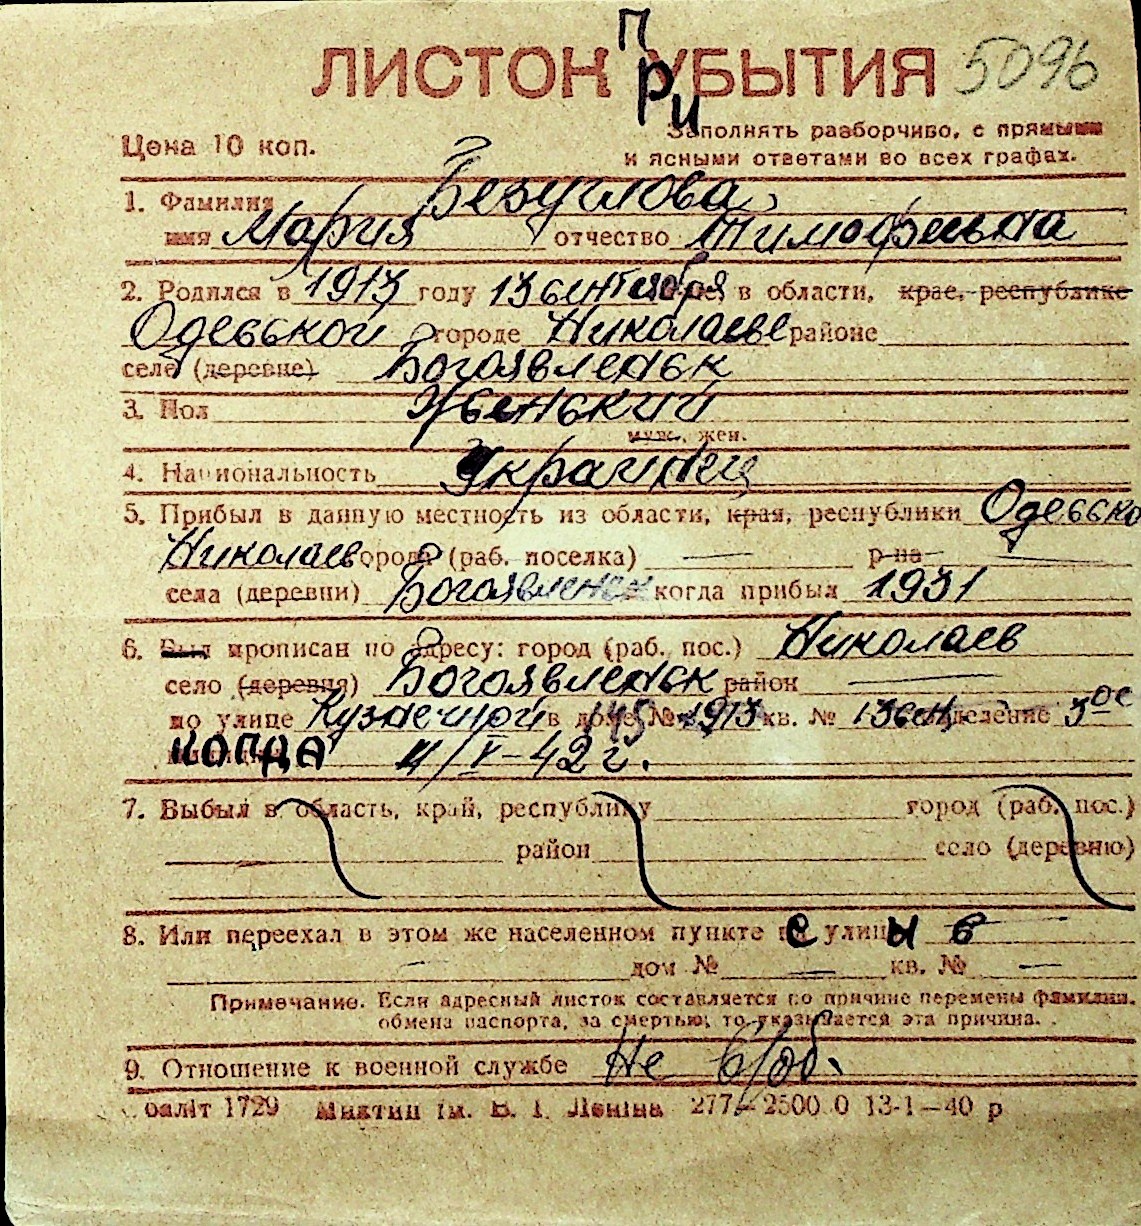 ЛИСТОК ПРИУБЫТИЯ 5096
Цена 10 коп.
Заполнять разборчиво, с прямыми
и ясными ответами во всех графах.
1. Фамилия Безуглова
имя Мария отчество Тимофеевна
2. Родился в 1913 году 13 сентября в области, крае, республике
Одесской городе Николаеве районе
селе (деревне) Богоявленск
3. Пол Женский
муж., жен.
4. Национальность Украинец
5. Прибыл в данную местность из области, края, республики Одесско
Николаев города (раб. поселка) — р-на —
села (деревни) Богоявленск когда прибыл 1931
6. Был прописан по адресу: город (раб. пос.) Николаев
село (деревня) Богоявленск район —
по улице Кузнечной в доме № 145 1913 кв. № 13 сен отделение 3ое
КОГДА 4/V-42 г.
7. Выбыл в область, край, республику город (раб. пос.)
район село (деревню)
8. Или переехал в этом же населенном пункте с улицы в —
— дом № — кв. № —
Примечание. Если адресный листок составляется по причине перемены фамилии,
обмена паспорта, за смертью, то указывается эта причина.
9. Отношение к военной службе Не в/об.
обліт 1729 ім. В. І. Леніна 277—2500 0 13-1—40 р